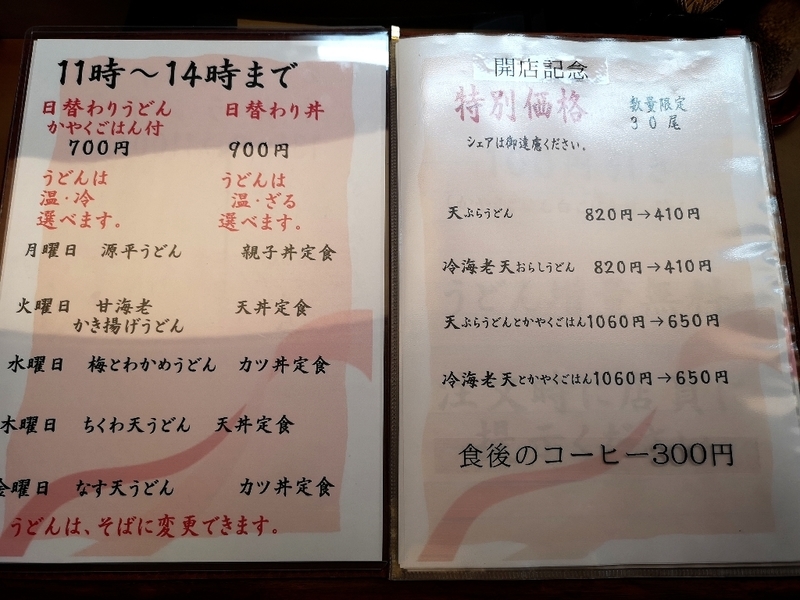 11時～14時まで
日替わりうどん 日替わり丼
かやくごはん付
700円 900円
うどんは うどんは
温・冷 温・ざる
選べます。 選べます。
月曜日 源平うどん 親子丼定食
火曜日 甘海老 天丼定食
かき揚げうどん
水曜日 梅とわかめうどん カツ丼定食
木曜日 ちくわ天うどん 天丼定食
金曜日 なす天うどん カツ丼定食
うどんは、そばに変更できます。
開店記念
特別価格 数量限定
30尾
シェアは御遠慮ください。
天ぷらうどん 820円→410円
冷海老天おらしうどん 820円→410円
天ぷらうどんとかやくごはん1060円→650円
冷海老天とかやくごはん1060円→650円
食後のコーヒー300円